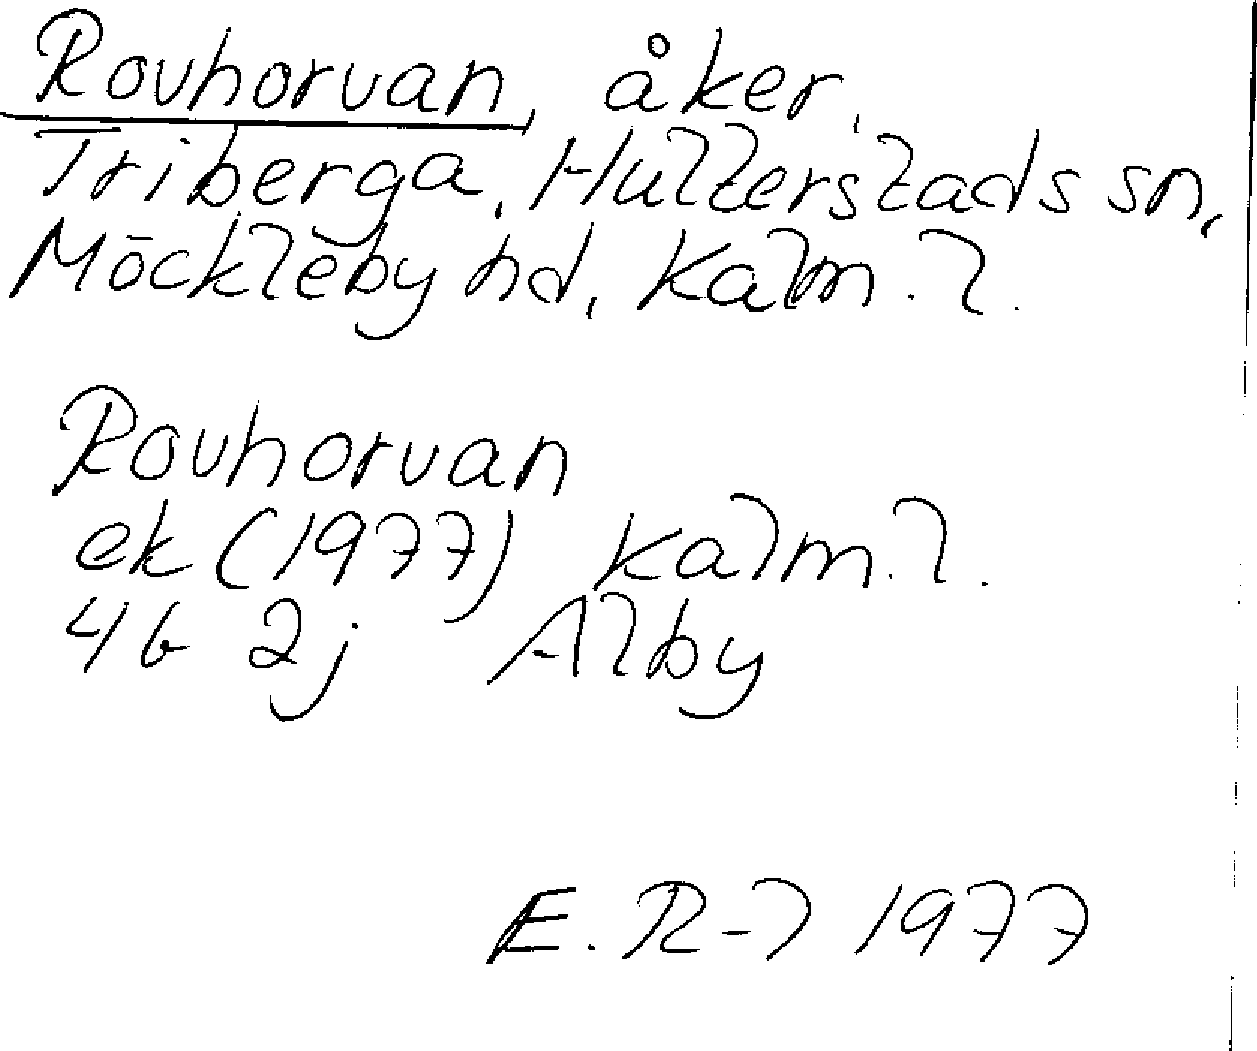 Rovhorvan, åker,
Triberga, Hulterstads sn,
Möckleby hd, Kalm. l.
Rovhorvan
ek (1977) Kalm. l.
4G 2j Alby
E. R-l 1977